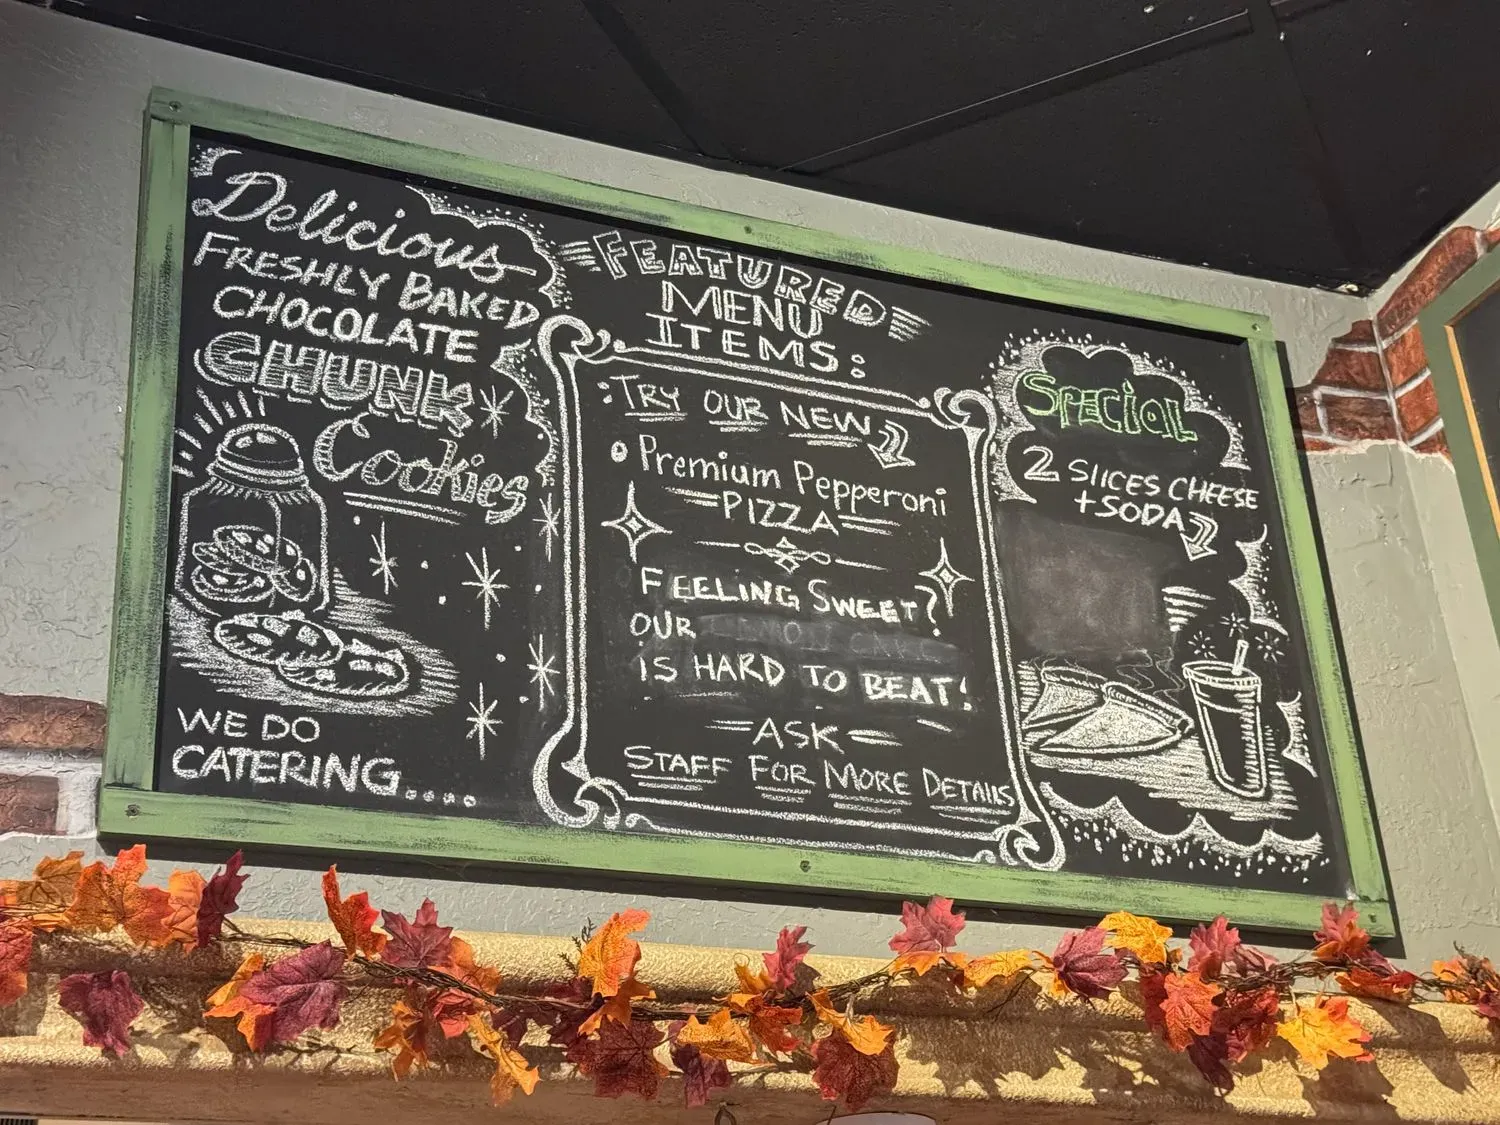 Delicious
FRESHLY BAKED
CHOCOLATE
CHUNK
Cookies
WE DO
CATERING....
FEATURED
MENU
ITEMS:
TRY OUR NEW
Premium Pepperoni
PIZZA
FEELING SWEET?
OUR
IS HARD TO BEAT!
ASK
STAFF FOR MORE DETAILS
SPECIAL
2 SLICES CHEESE
+SODA